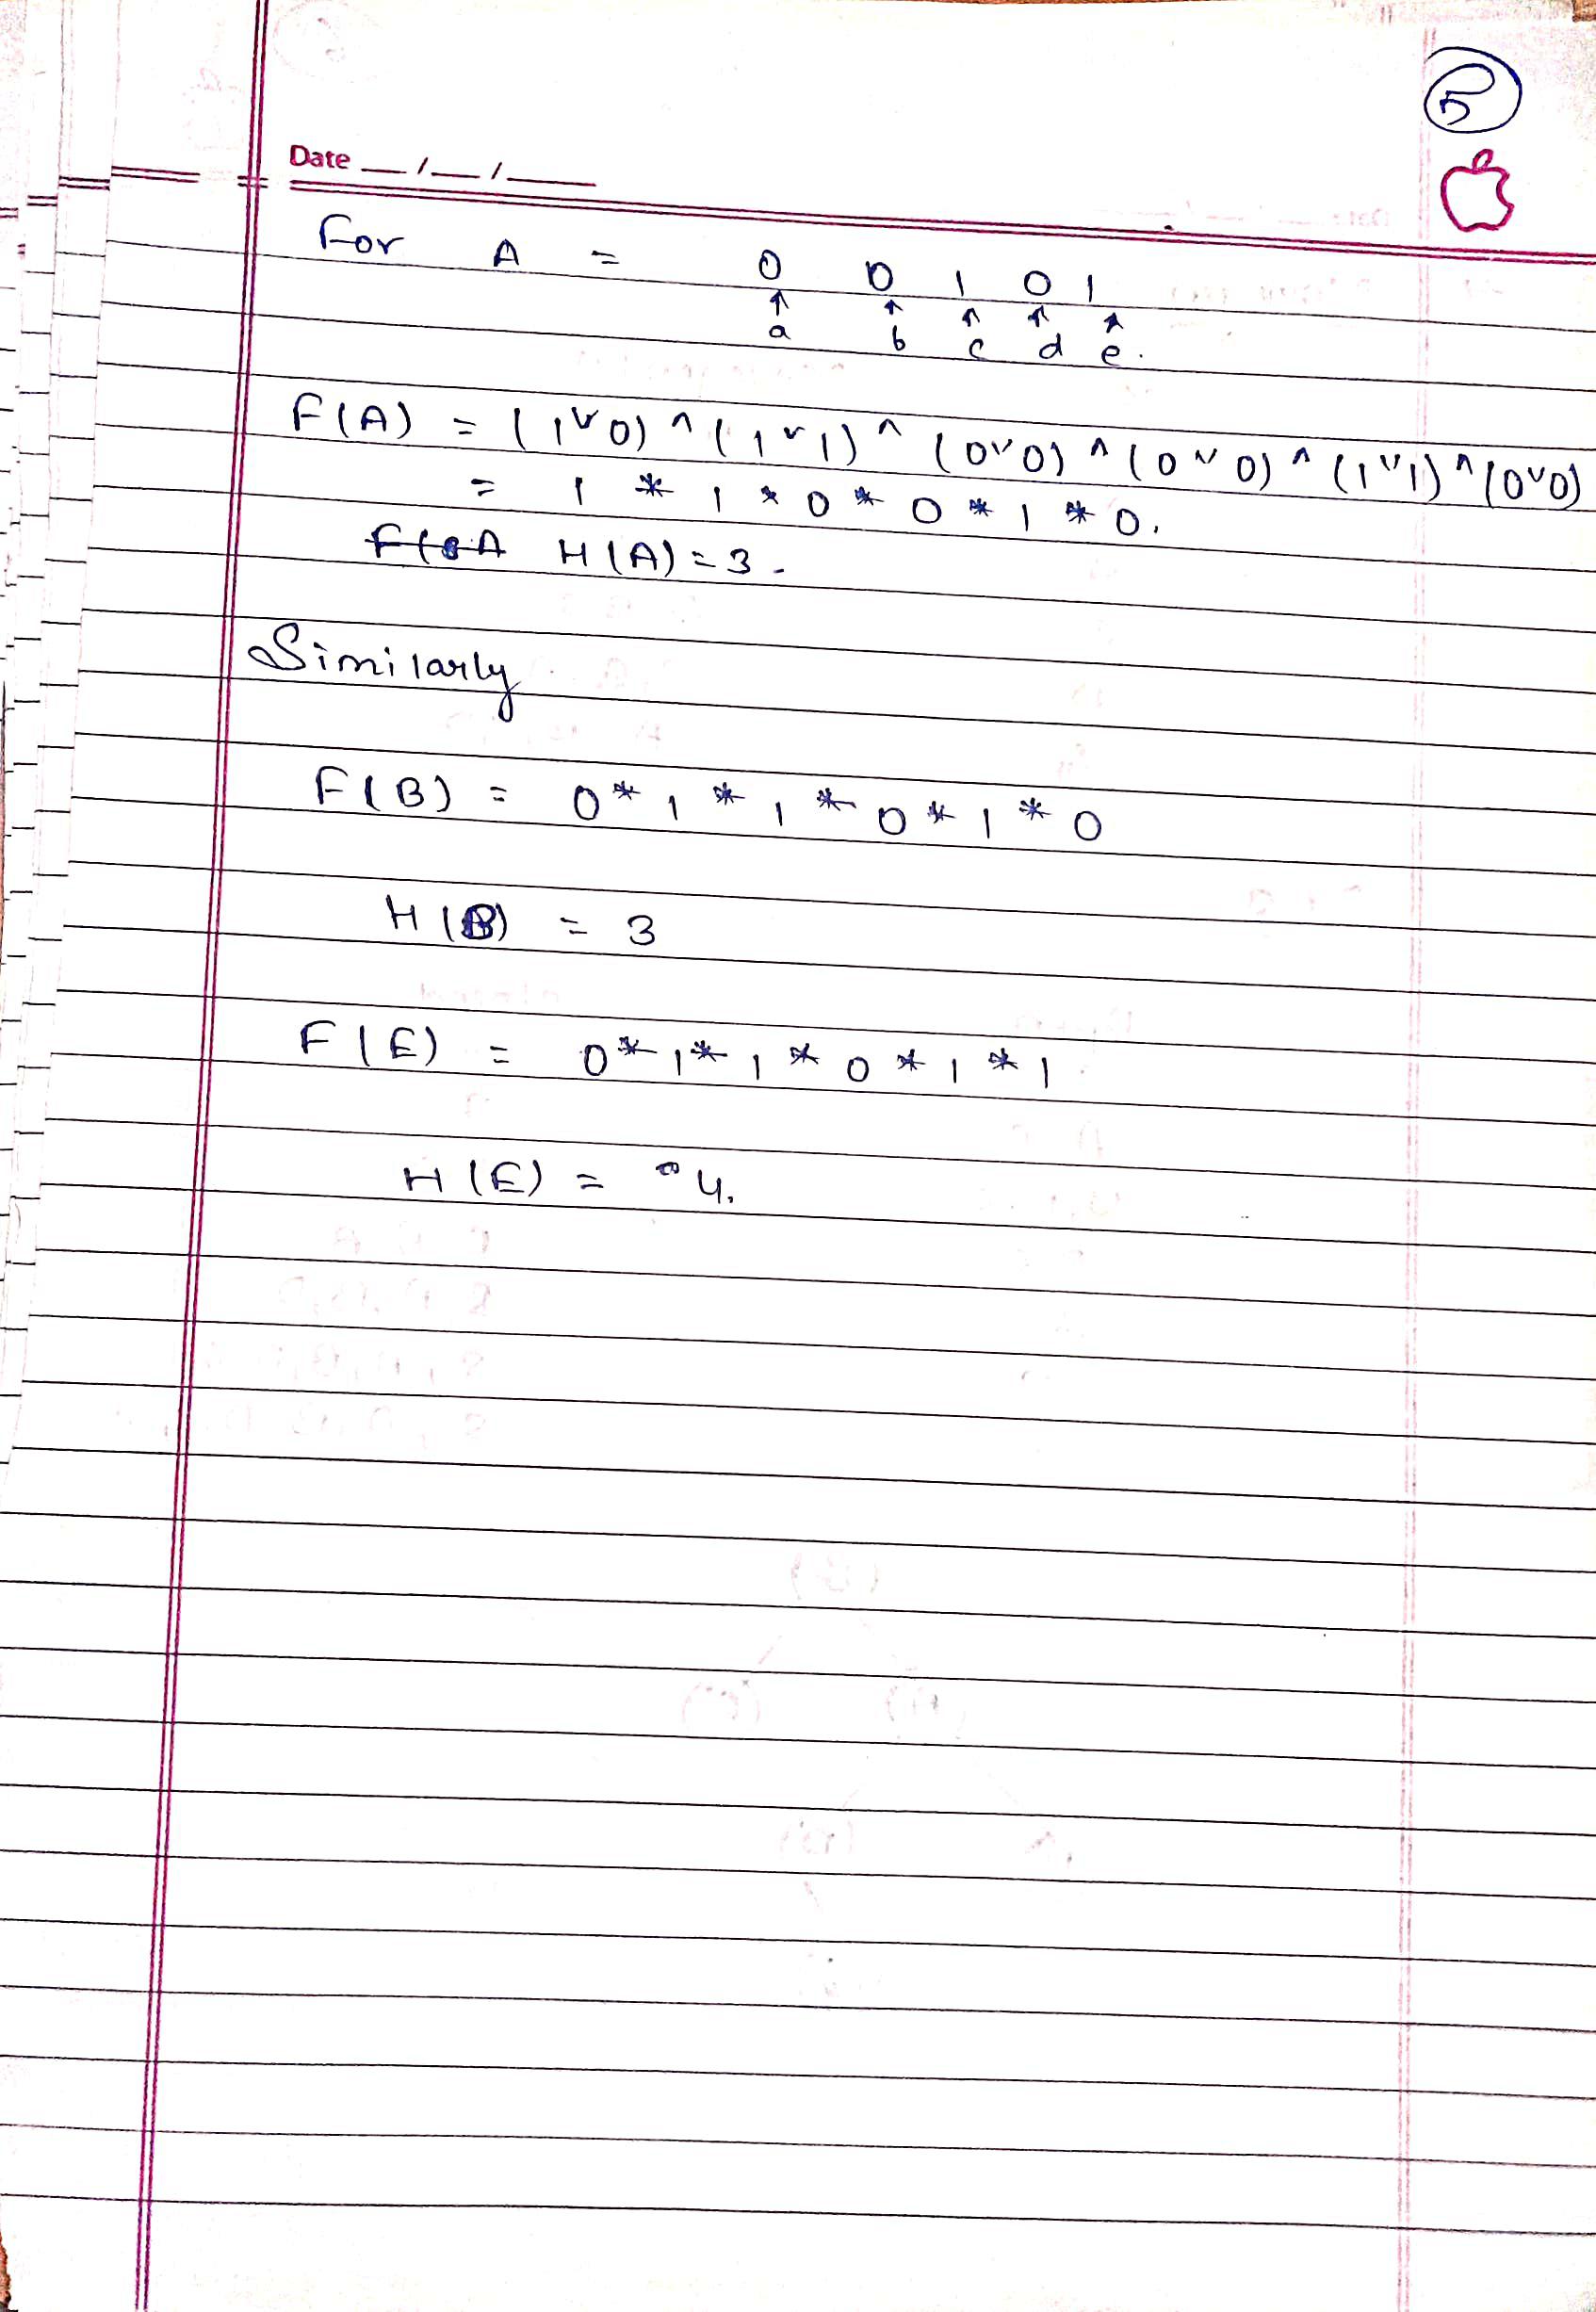 5
Date __/__/____
For A = 0 0 1 0 1
↑ ↑ ↑ ↑ ↑
a b c d e.
F(A) = (1∨0) ^ (1∨1) ^ (0∨0) ^ (0∨0) ^ (1∨1) ^ (0∨0)
= 1 * 1 * 0 * 0 * 1 * 0.
H(A) = 3.
Similarly
F(B) = 0 * 1 * 1 * 0 * 1 * 0
H(B) = 3
F(E) = 0 * 1 * 1 * 0 * 1 * 1
H(E) = 4.